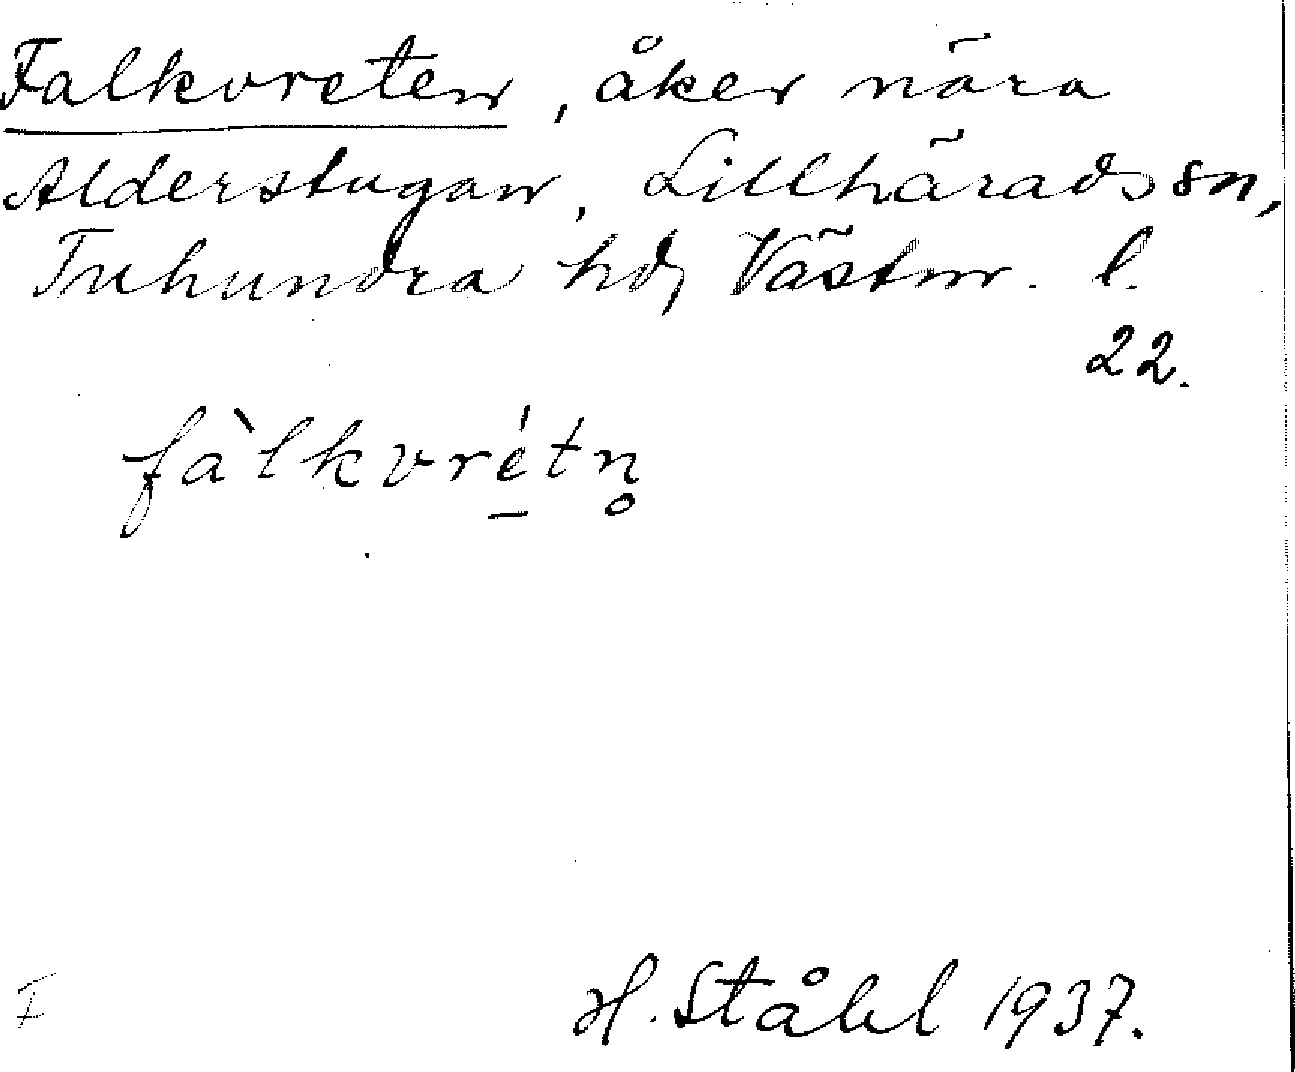 Falkvreten, åker nära
Alderstugan, Lillhärads sn,
Tuhundra hd, Västm. l.
22.
fàlkvré̠tn̥
F
H. Ståhl 1937.